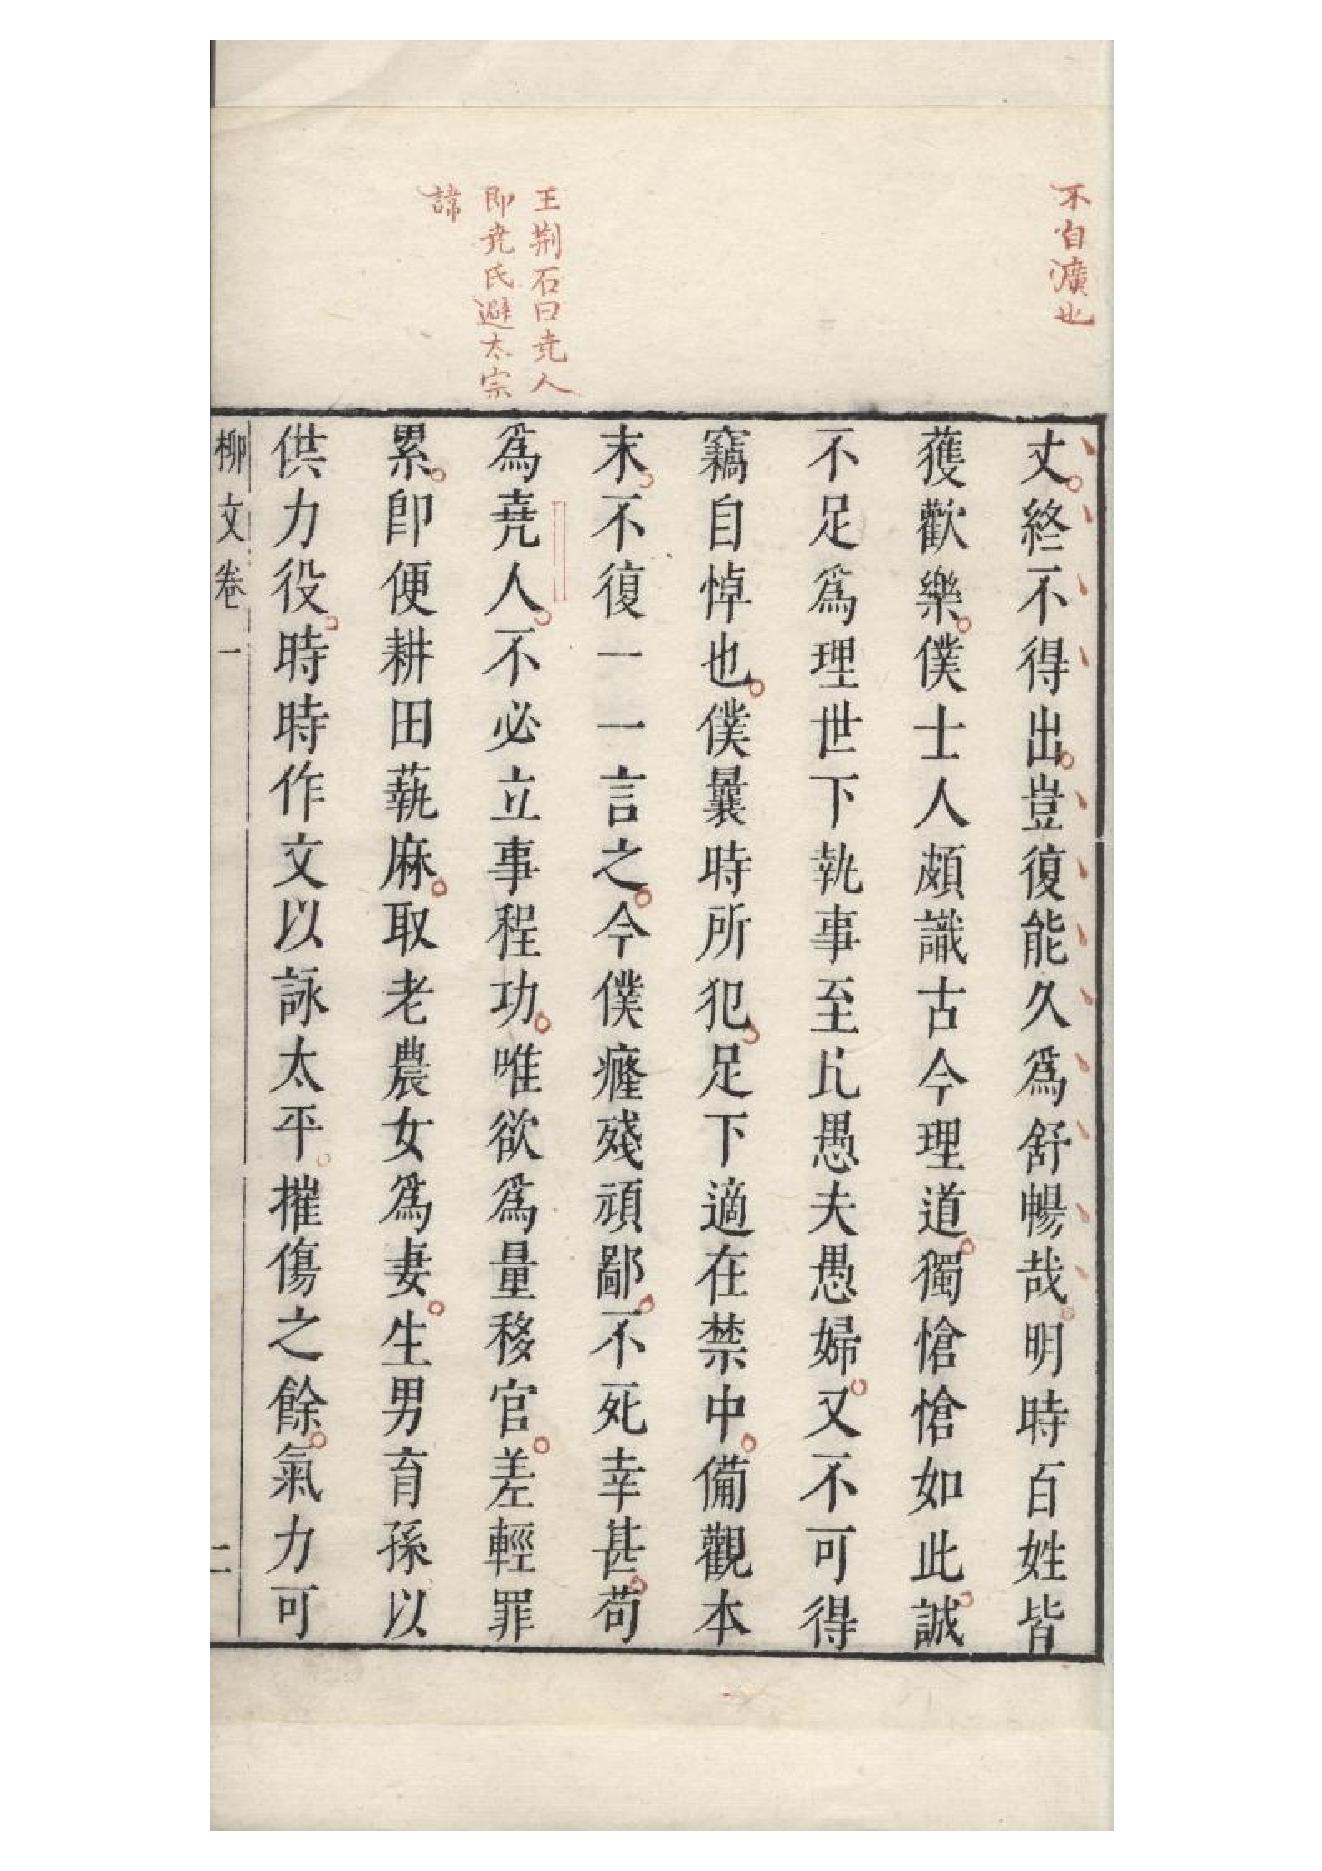 不自廣也
王荆石曰尭人
即尭氏避太宗
諱
丈終不得出豈復能久爲舒暢哉明時百姓皆
獲歡樂僕士人頗識古今理道獨愴愴如此誠
不足爲理世下執事至比愚夫愚婦又不可得
竊自悼也僕曩時所犯足下適在禁中備觀本
末不復一一言之今僕癃殘頑鄙不死幸甚苟
爲尭人不必立事程功唯欲爲量移官差輕罪
累卽便耕田蓺麻取老農女爲妻生男育孫以
供力役時時作文以詠太平摧傷之餘氣力可
柳文卷一
二